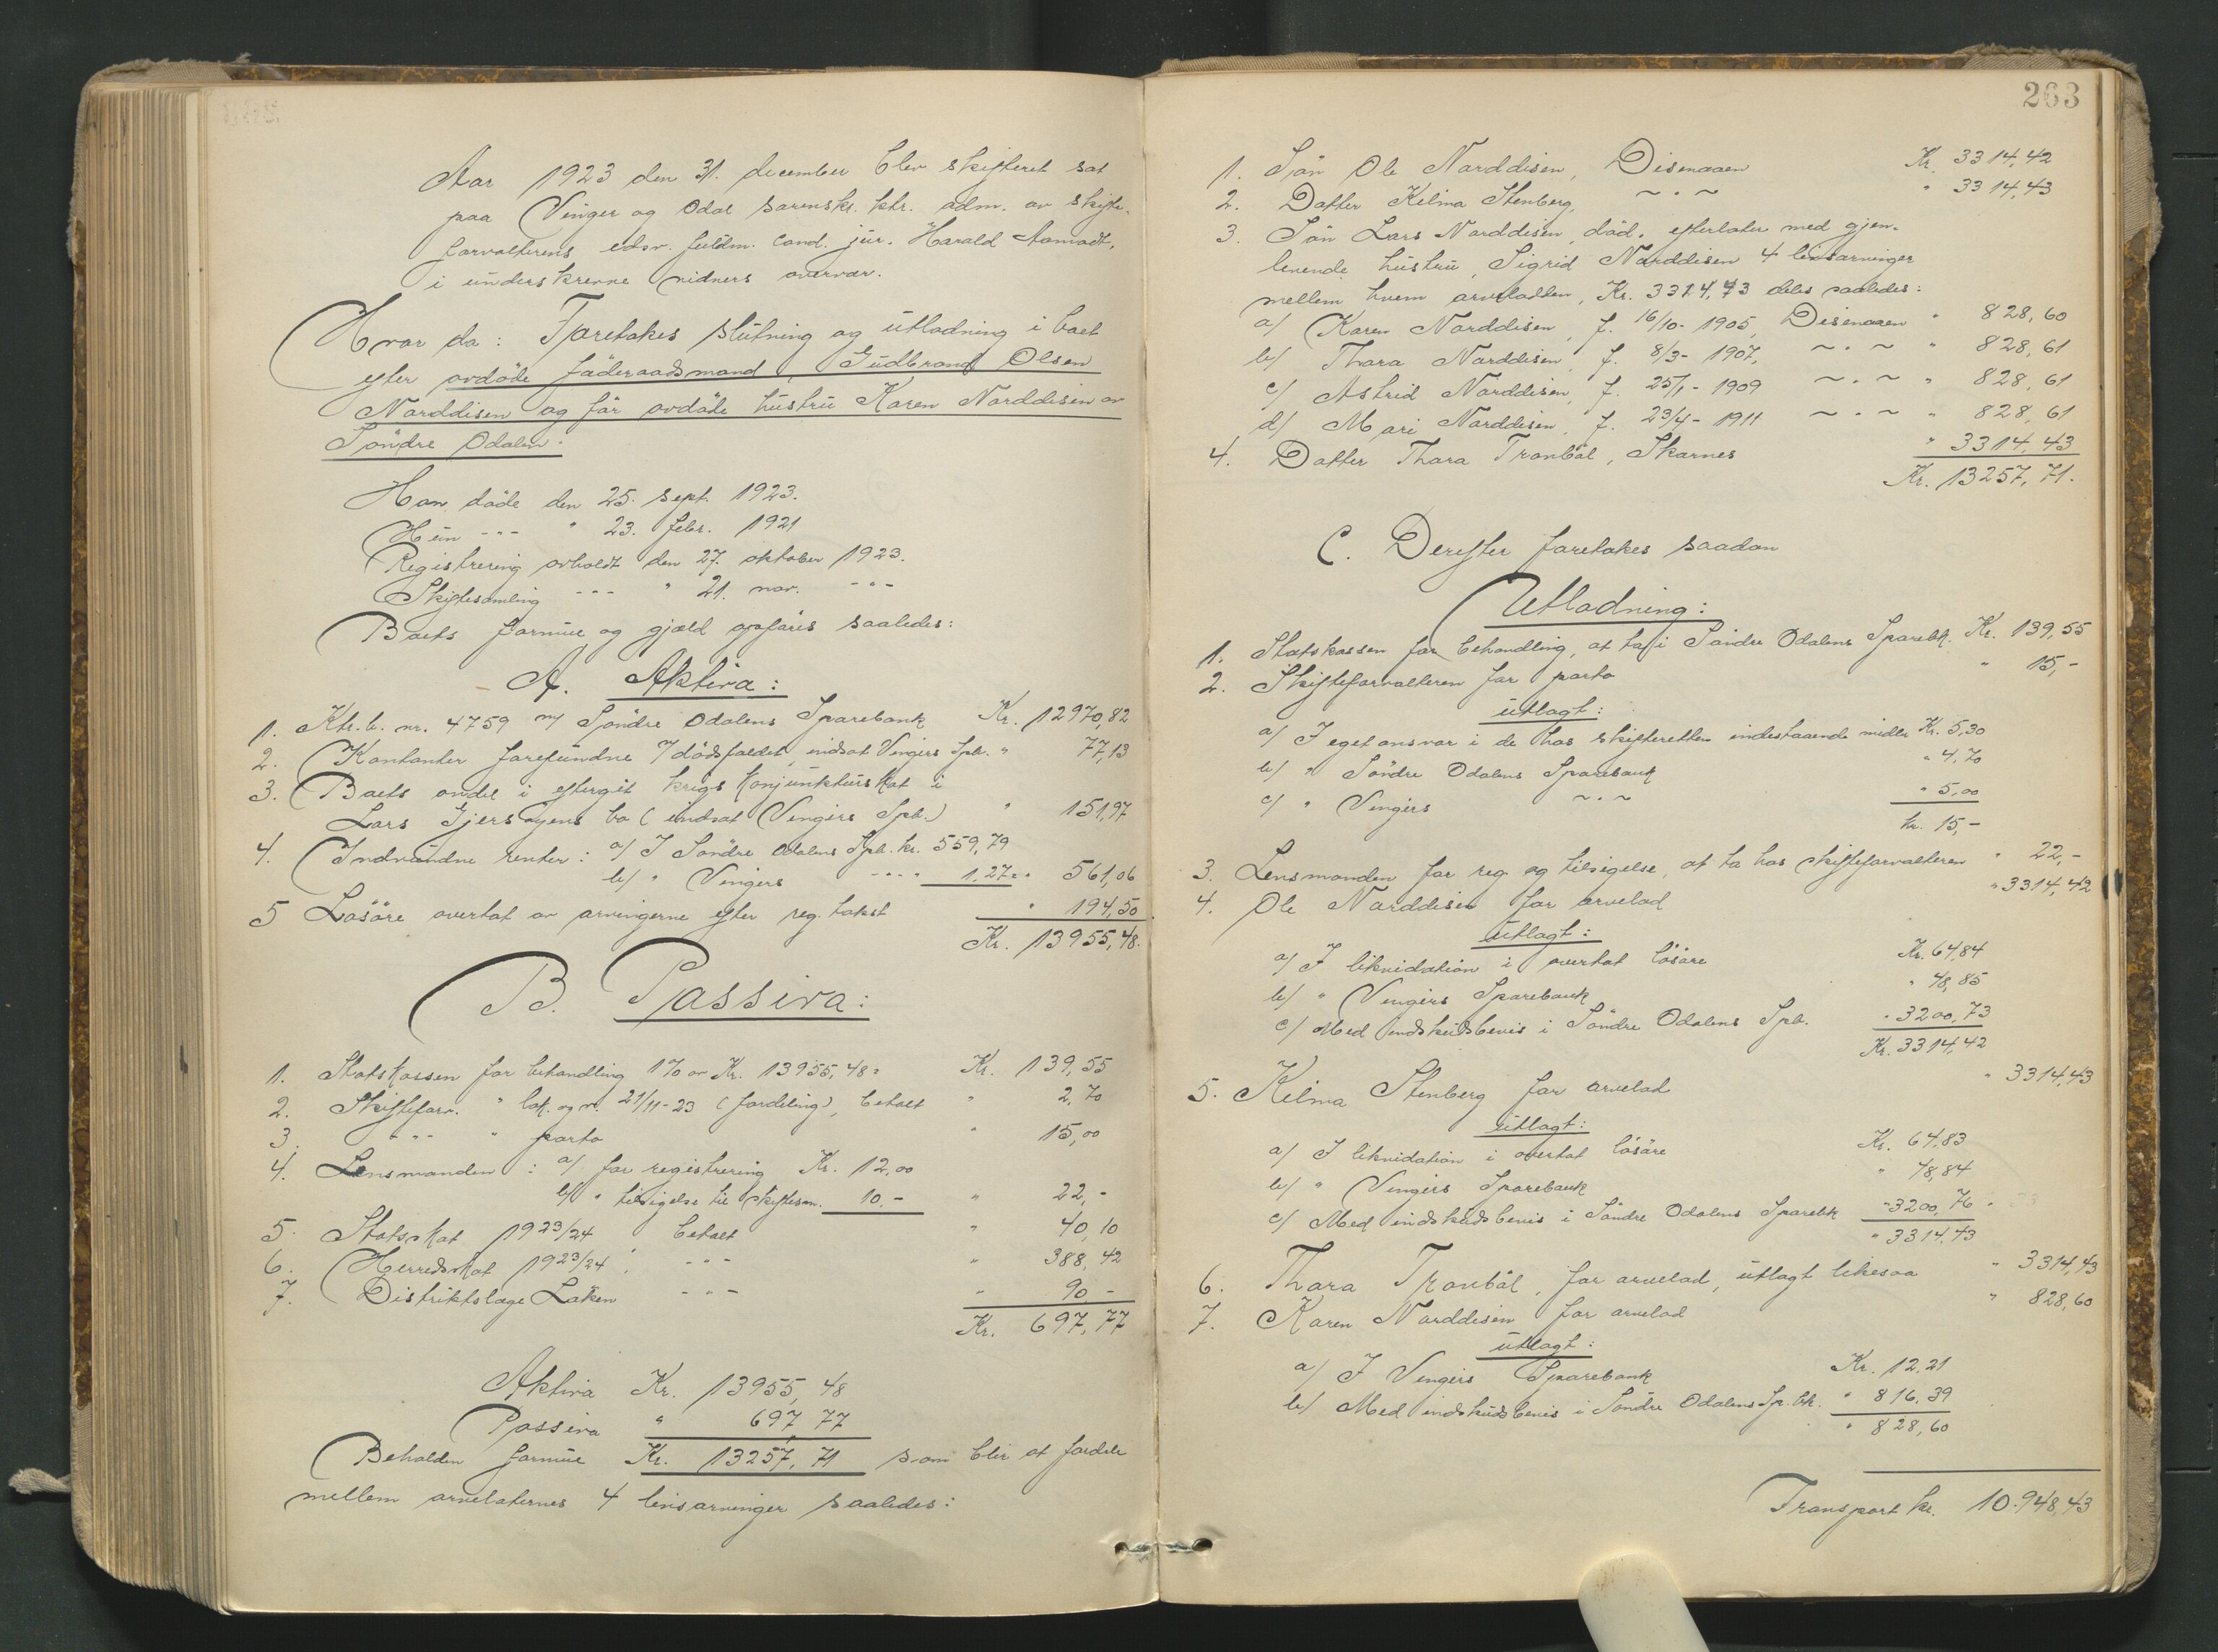 Aar 1923 den 31. december blev skifteret sat
paa Vinger og Odal sorenskr. ktr. adm. av skifte-
forvalterens edsv. fuldm. cand. jur. Harald Aamodt,
i underskrevne vidners overvær.
Hvor da: Foretokes slutning og utlodning i boet
efter avdöde föderaadsmand, Gudbrand Olsen
Norddisen og för avdöde hustru Karen Norddisen av
Söndre Odalen.
Han döde den 25. sept. 1923.
Hun --- " 23. febr. 1921
Registrering avholdt den 27. oktober 1923.
Skiftesamling --- " 21. nov. -"-
Boets formue og gjæld opföres saaledes:
A. Aktiva:
1. Ktr.b. nr. 4759 m/ Söndre Odalens Sparebank Kr. 12970,82
2. Kontanter forefundne v/ dödsfaldet, indsat Vingers Spb. " 77,13
3. Boets andel i eftergit krigskonjunkturskat i
Lars Gjersöyens bo (indsat Vingers Spb.) " 151,97
4. Indvundne renter: a/ I Söndre Odalens Spb. kr. 559,79
b/ " Vingers -"- " 1,27 = " 561,06
5 Lösöre overtat av arvingerne efter reg. takst " 194,50
Kr. 13955,48.
B. Passiva:
1. Statskassen for behandling 1% av Kr. 13955,48 = Kr. 139,55
2. Skifteforv. " lok. og v. 21/11-23 (fordeling), betalt " 2,70
3. -"- " porto " 15,00
4. Lensmanden: a/ for registrering Kr. 12,00
b/ " tilsigelse til skiftesm. 10,- " 22,-
5. Statsskat 1923/24 betalt " 40,10
6. Herredsskat 1923/24, -"- " 388,42
7. Distriktslæge Löken -"- " 90 -
Kr. 697,77
Aktiva Kr. 13955,48
Passiva " 697,77
Beholden formue Kr. 13257,71 som blir at fordele
mellem arvelaternes 4 livsarvinger saaledes:
263
1. Sön Ole Norddisen, Disenaaen Kr. 3314,42
2. Datter Kelma Stenberg, ~"~ " 3314,43
3. Sön Lars Norddisen, död, efterlater med gjen-
levende hustru, Sigrid Norddisen 4 livsarvinger
mellem hvem arvelodden, Kr. 3314,43 deles saaledes:
a/ Karen Norddisen, f. 16/10-1905, Disenaaen " 828,60
b/ Thora Norddisen, f. 8/3-1907, ~"~ " 828,61
c/ Astrid Norddisen, f. 25/1-1909 ~"~ " 828,61
d/ Mari Norddisen, f. 23/4-1911 ~"~ " 828,61
4. Datter Thora Tronböl, Skarnes " 3314,43
Kr. 13257,71.
C. Derefter foretokes saadan
Utlodning:
1. Statskassen for behandling, at ta i Söndre Odalens Sparebk. Kr. 139,55
2. Skifteforvalteren for porto " 15,-
utlagt:
a/ I eget ansvar i de hos skifteretten indestaaende midler Kr. 5,30
b/ " Söndre Odalens Sparebank " 4,70
c/ " Vingers ~"~ " 5,00
kr. 15,-
3. Lensmanden for reg. og tilsigelse, at ta hos skifteforvalteren " 22,-
4. Ole Norddisen for arvelod " 3314,42
utlagt:
a/ I likvidation i overtat lösöre Kr. 64,84
b/ " Vingers Sparebank " 48,85
c/ Med indskudsbevis i Söndre Odalens Spb. " 3200,73
Kr. 3314,42
5. Kelma Stenberg for arvelod " 3314,43
utlagt:
a/ I likvidation i overtat lösöre Kr. 64,83
b/ " Vingers Sparebank " 48,84
c/ Med indskudsbevis i Söndre Odalens Sparebk " 3200,76
" 3314,43
6. Thora Tronböl, for arvelod, utlagt likesaa " 3314,43
7. Karen Norddisen for arvelod " 828,60
utlagt:
a/ I Vingers Sparebank Kr. 12,21
b/ Med indskudsbevis i Söndre Odalens Sp.bk. " 816,39
" 828,60
Transport kr. 10.948,43